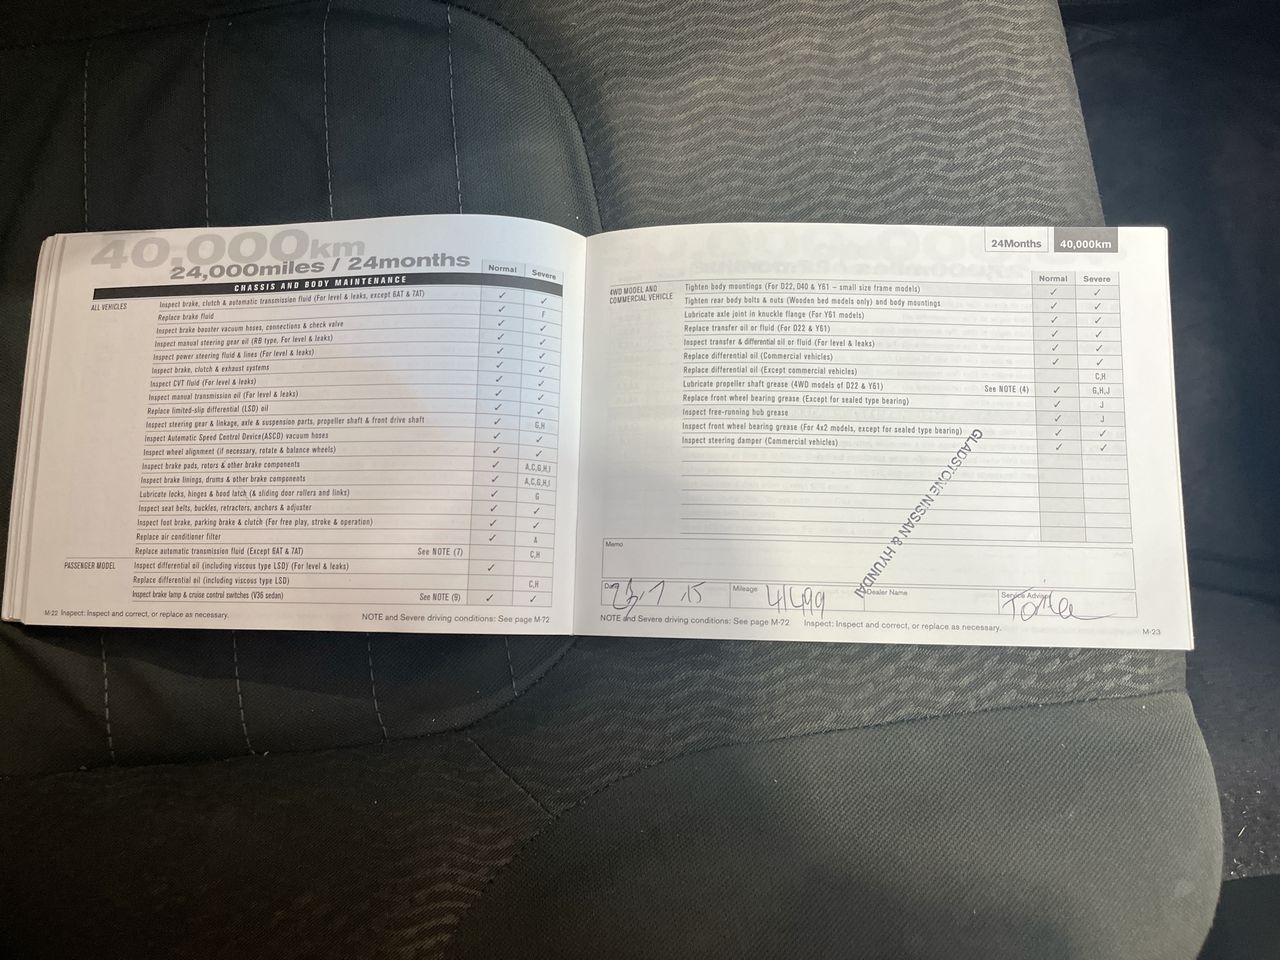 40,000km
24,000miles / 24months
Normal Severe
CHASSIS AND BODY MAINTENANCE
ALL VEHICLES
Inspect brake, clutch & automatic transmission fluid (For level & leaks, except 6AT & 7AT) ✓ ✓
Replace brake fluid ✓ F
Inspect brake booster vacuum hoses, connections & check valve ✓ ✓
Inspect manual steering gear oil (RB type, For level & leaks) ✓ ✓
Inspect power steering fluid & lines (For level & leaks) ✓ ✓
Inspect brake, clutch & exhaust systems ✓ ✓
Inspect CVT fluid (For level & leaks) ✓ ✓
Inspect manual transmission oil (For level & leaks) ✓ ✓
Replace limited-slip differential (LSD) oil ✓ ✓
Inspect steering gear & linkage, axle & suspension parts, propeller shaft & front drive shaft ✓ G,H
Inspect Automatic Speed Control Device(ASCD) vacuum hoses ✓ ✓
Inspect wheel alignment (if necessary, rotate & balance wheels) ✓ ✓
Inspect brake pads, rotors & other brake components ✓ A,C,G,H,I
Inspect brake linings, drums & other brake components ✓ A,C,G,H,I
Lubricate locks, hinges & hood latch (& sliding door rollers and links) ✓ G
Inspect seat belts, buckles, retractors, anchors & adjuster ✓ ✓
Inspect foot brake, parking brake & clutch (For free play, stroke & operation) ✓ ✓
Replace air conditioner filter ✓ A
Replace automatic transmission fluid (Except 6AT & 7AT) See NOTE (7) C,H
PASSENGER MODEL
Inspect differential oil (including viscous type LSD) (For level & leaks) ✓
Replace differential oil (including viscous type LSD) C,H
Inspect brake lamp & cruise control switches (V36 sedan) See NOTE (9) ✓ ✓
M-22 Inspect: Inspect and correct, or replace as necessary.
NOTE and Severe driving conditions: See page M-72
24Months 40,000km
Normal Severe
4WD MODEL AND
COMMERCIAL VEHICLE
Tighten body mountings (For D22, D40 & Y61 – small size frame models) ✓ ✓
Tighten rear body bolts & nuts (Wooden bed models only) and body mountings ✓ ✓
Lubricate axle joint in knuckle flange (For Y61 models) ✓ ✓
Replace transfer oil or fluid (For D22 & Y61) ✓ ✓
Inspect transfer & differential oil or fluid (For level & leaks) ✓ ✓
Replace differential oil (Commercial vehicles) ✓ ✓
Replace differential oil (Except commercial vehicles) C,H
Lubricate propeller shaft grease (4WD models of D22 & Y61) See NOTE (4) ✓ G,H,J
Replace front wheel bearing grease (Except for sealed type bearing) ✓ J
Inspect free-running hub grease ✓ J
Inspect front wheel bearing grease (For 4x2 models, except for sealed type bearing) ✓ ✓
Inspect steering damper (Commercial vehicles) ✓ ✓
GLADSTONE NISSAN & HYUNDAI
Memo
Mileage
41499
Dealer Name
Service Advisor
NOTE and Severe driving conditions: See page M-72
Inspect: Inspect and correct, or replace as necessary.
M-23